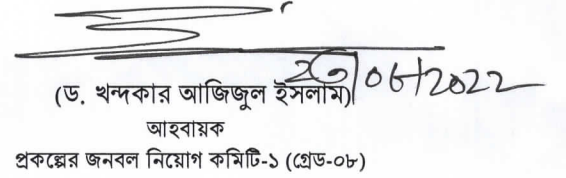 (ড. খন্দকার আজিজুল ইসলাম)
আহবায়ক
প্রকল্পের জনবল নিয়োগ কমিটি-১ (গ্রেড-০৮)